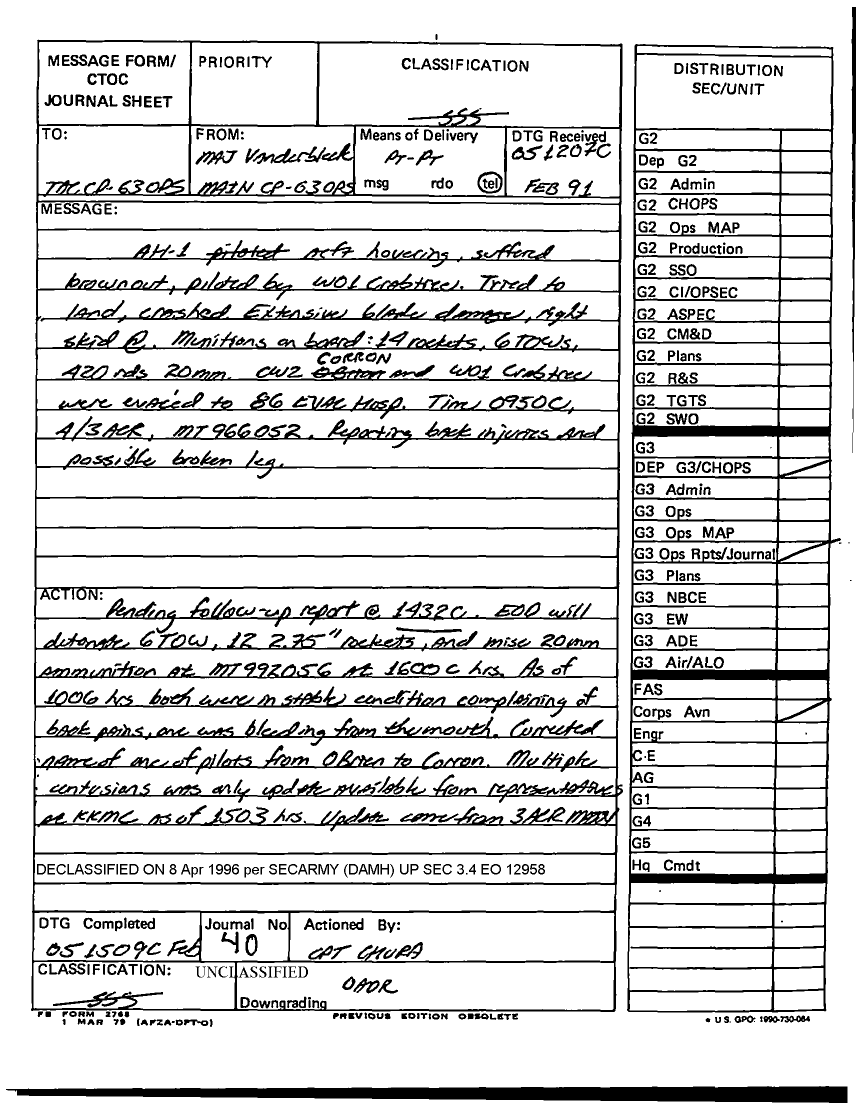 MESSAGE FORM/
CTOC
JOURNAL SHEET
PRIORITY
CLASSIFICATION
TO:
TAC CP-G3 OPS
FROM:
MAJ Vanderbleek
MAIN CP-G3 OPS
Means of Delivery
PT-PT
msg rdo tel
DTG Received
051207C
FEB 91
MESSAGE:
AH-1 piloted acft hovering, suffered
brownout, piloted by WO1 Crabtree. Tried to
land, crashed. Extensive blade damage, right
skid @. Munitions on board: 14 rockets, 6 TOWs,
CORRON
420 rds 20mm. CW2 OBrien and WO1 Crabtree
were evac'ed to 86 EVAC Hosp. Time 0950C,
A/3ACR, MT966052. Reporting back injuries and
possible broken leg.
ACTION:
Pending follow-up report @ 1432C. EOD will
detonate 6 TOW, 12 2.75" rockets, and misc 20mm
ammunition at MT992056 at 1600C hrs. As of
1006 hrs both were in stable condition complaining of
back pains, one was bleeding from the mouth. Corrected
name of one of pilots from OBrien to Corron. Multiple
contusions was only update available from representatives
at KKMC as of 1503 hrs. Update came from 3ACR
DECLASSIFIED ON 8 Apr 1996 per SECARMY (DAMH) UP SEC 3.4 EO 12958
DTG Completed
051509C Feb
Journal No
40
Actioned By:
CPT CHUPA
CLASSIFICATION:
UNCLASSIFIED
OADR
Downgrading
FB FORM 2768
1 MAR 79 (AFZA-DPT-O)
PREVIOUS EDITION OBSOLETE
DISTRIBUTION
SEC/UNIT
G2
Dep G2
G2 Admin
G2 CHOPS
G2 Ops MAP
G2 Production
G2 SSO
G2 CI/OPSEC
G2 ASPEC
G2 CM&D
G2 Plans
G2 R&S
G2 TGTS
G2 SWO
G3
DEP G3/CHOPS
G3 Admin
G3 Ops
G3 Ops MAP
G3 Ops Rpts/Journal
G3 Plans
G3 NBCE
G3 EW
G3 ADE
G3 Air/ALO
FAS
Corps Avn
Engr
C-E
AG
G1
G4
G5
Hq Cmdt
* U.S. GPO: 1990-730-064